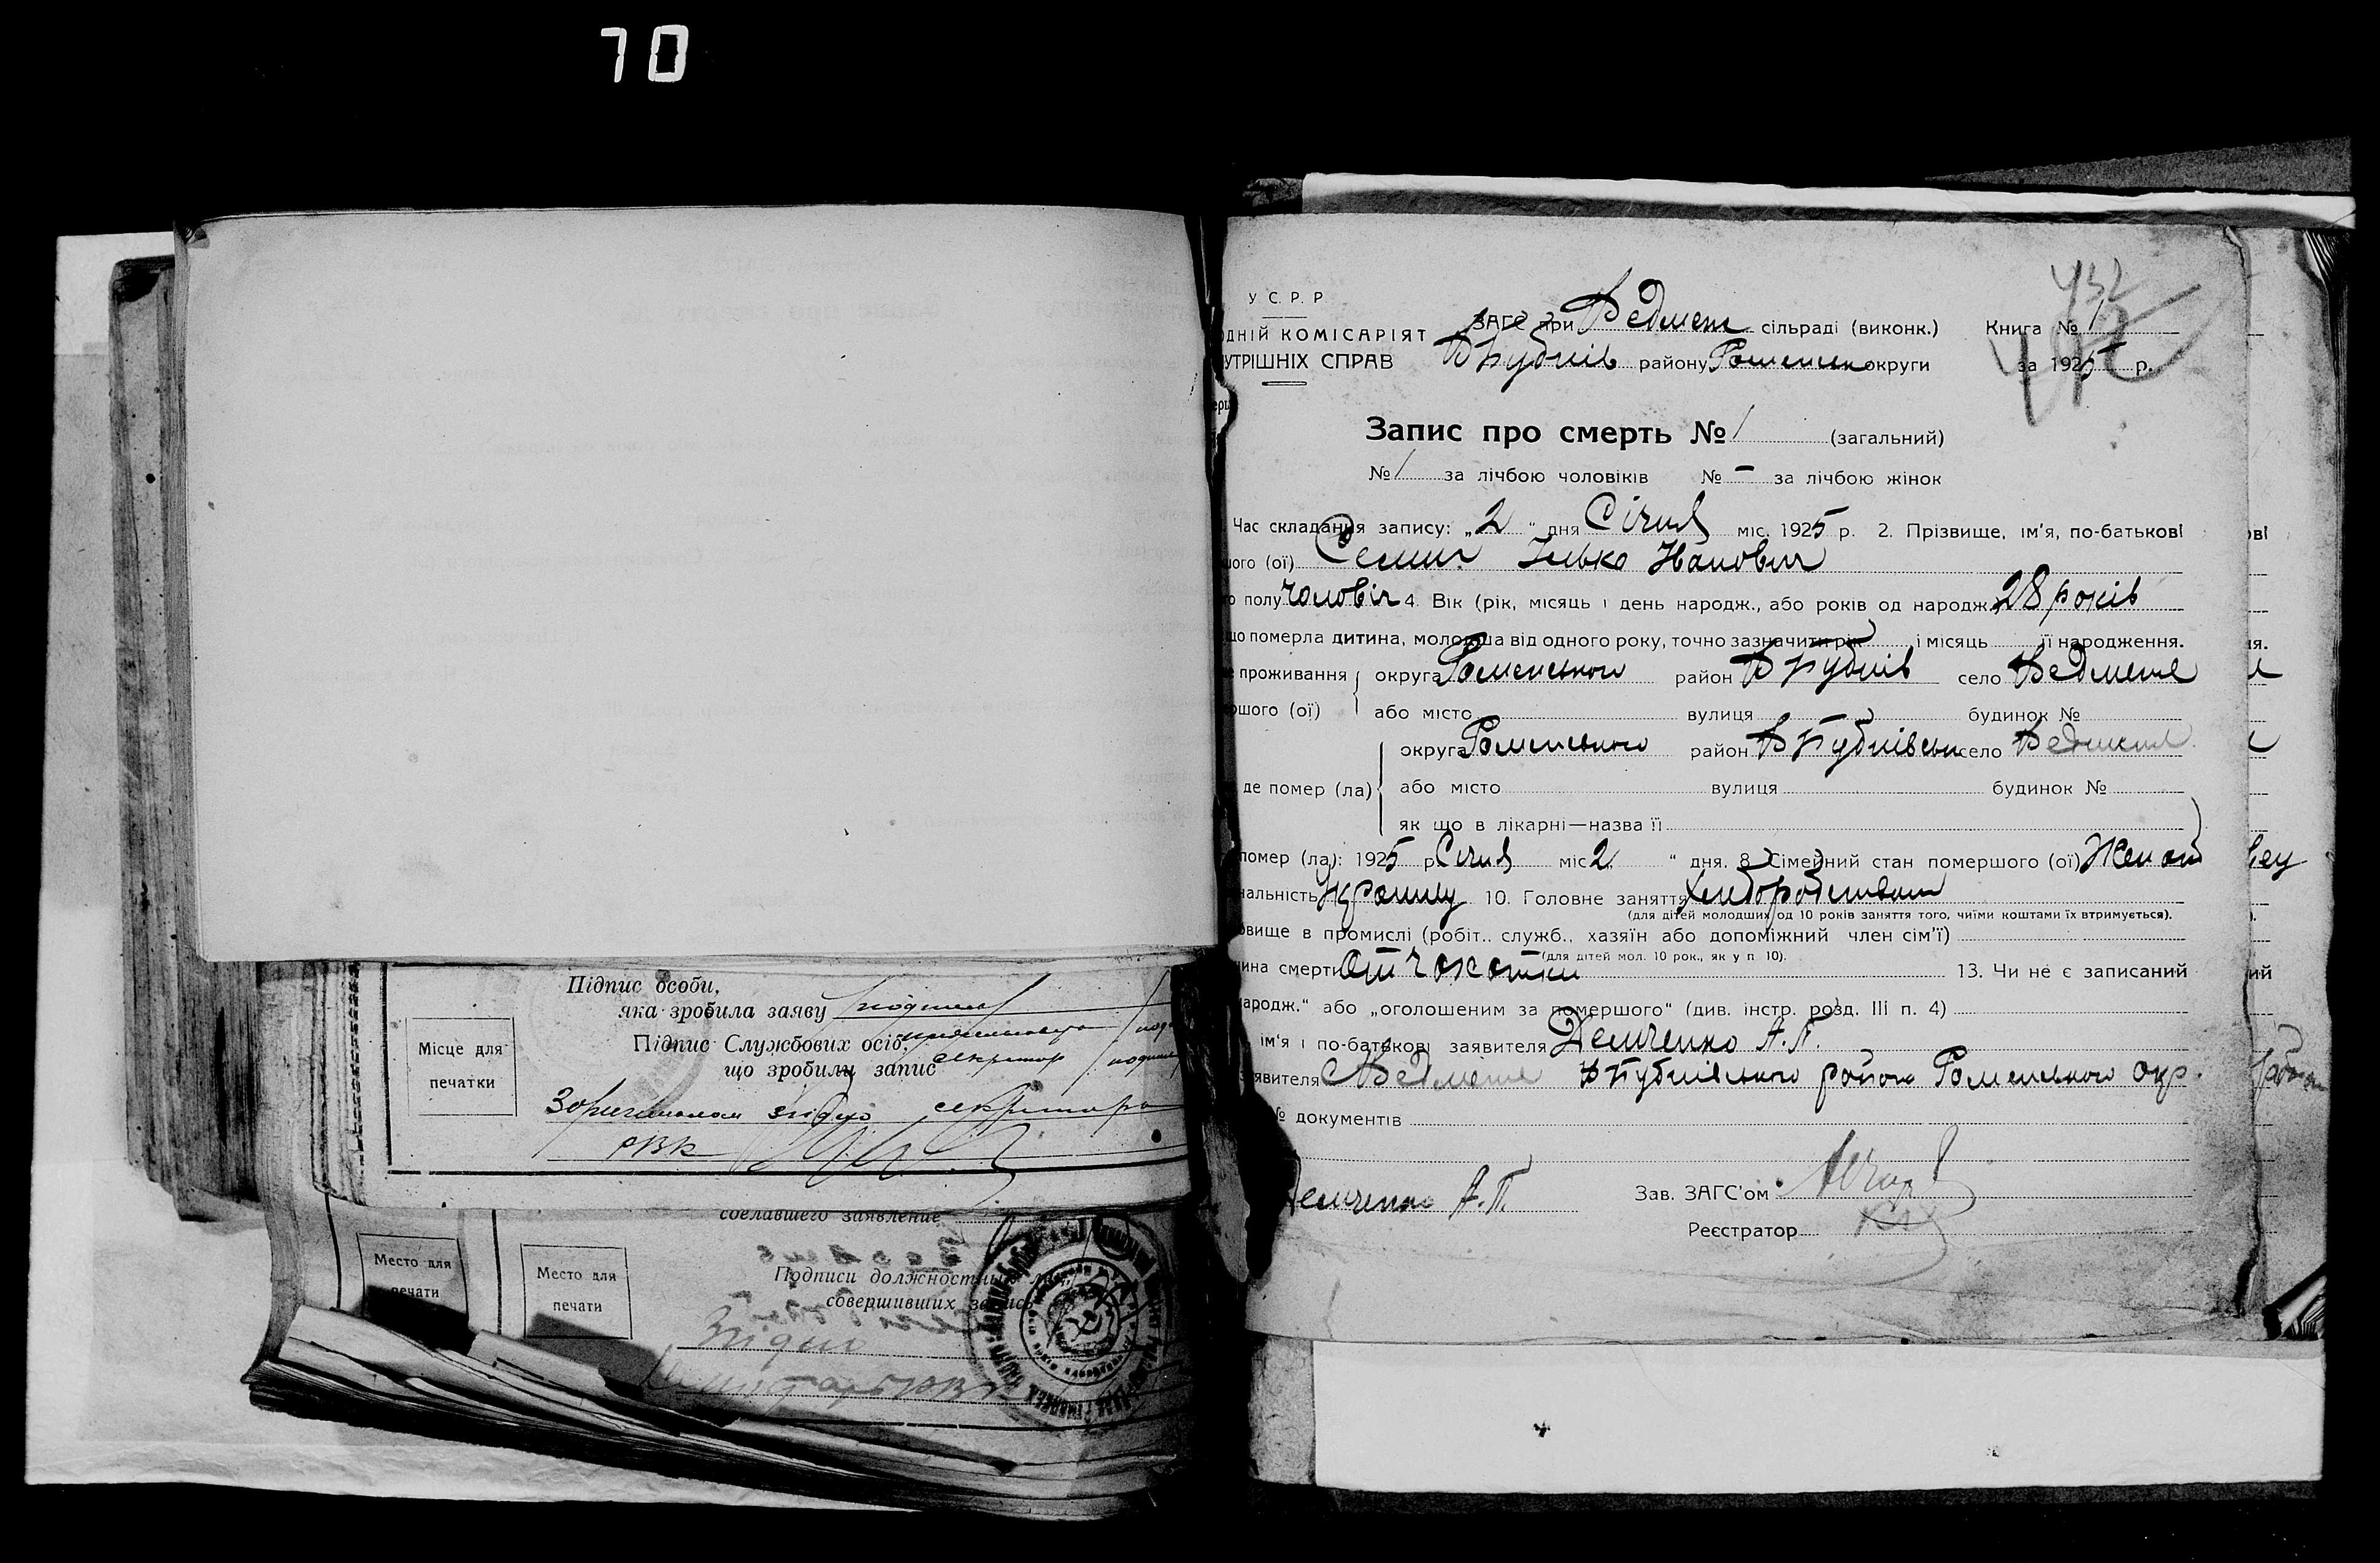 70
Підпис особи,
яка зробила заяву
Підпис Службових осіб,
що зробили запис секретар
Місце для
печатки
секретарь
РВК
сделавшего заявление
Место для
печати
Место для
печати
Подписи должностных лиц,
совершивших запись
Згідно
У С. Р. Р
ДНІЙ КОМІСАРІЯТ
УТРІШНІХ СПРАВ
432
ЗАГС при Ведмеж сільраді (виконк.) Книга № 1
району Роменськ округи за 1925 р.
Запис про смерть № 1 (загальний)
№ 1 за лічбою чоловіків № – за лічбою жінок
Час складання запису: „2“ дня Січня міс. 1925 р. 2. Прізвище, ім'я, по-батькові
ого (ої) Ілько Іванович
полу Чоловіч 4. Вік (рік, місяць і день народж., або років од народж. 28 років
що померла дитина, молодша від одного року, точно зазначити рік і місяць її народження.
проживання округа Роменського район село Ведмеже
ршого (ої) або місто вулиця будинок №
округа Роменського район село Ведмеже
де помер (ла) або місто вулиця будинок №
як що в лікарні—назва її
помер (ла): 1925 р. Січня міс. 2 “ дня. 8. Сімейний стан помершого (ої) Женат
нальність 10. Головне заняття Хліборобство
(для дітей молодших од 10 років заняття того, чиїми коштами їх втримується).
овище в промислі (робіт.. служб., хазяїн або допоміжний член сім'ї)
(для дітей мол. 10 рок., як у п 10).
ина смерти От чахотки 13. Чи не є записаний
ародж.“ або „оголошеним за помершого“ (див. інстр. розд. III п. 4)
ім'я і по-батькові заявителя Демченко А.П.
явителя С Ведмеже району Роменського окр.
№ документів
Демченко А.П. Зав. ЗАГС'ом
Реєстратор